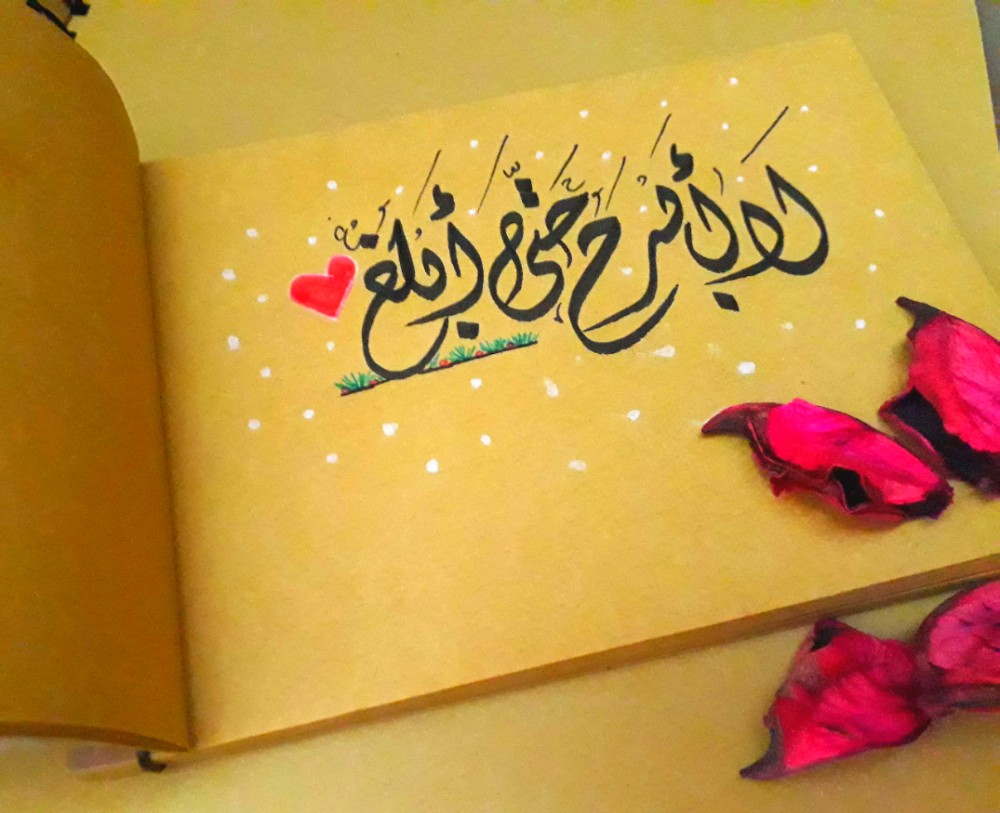 لا أبرح حتّى أبلغ